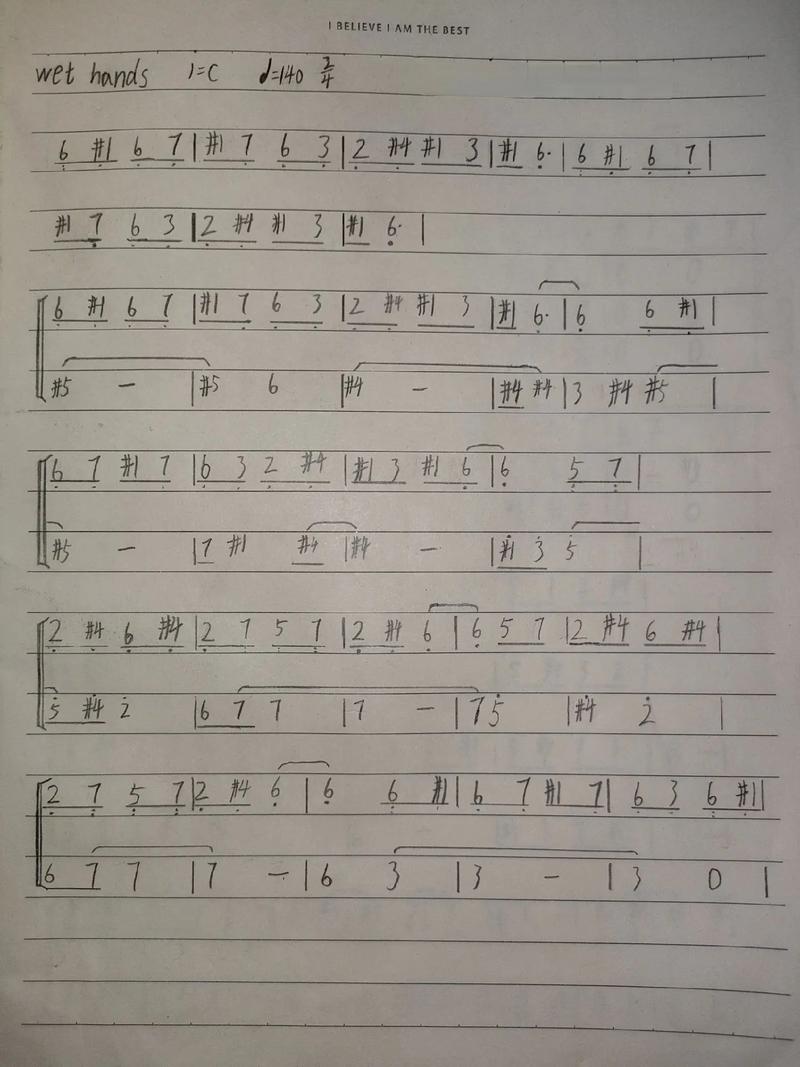 I BELIEVE I AM THE BEST
wet hands 1=C ♩=140 2/4
6 #1 6 7 | #1 7 6 3 | 2 #4 #1 3 | #1 6· | 6 #1 6 7 |
#1 7 6 3 | 2 #4 #1 3 | #1 6· |
6 #1 6 7 | #1 7 6 3 | 2 #4 #1 3 | #1 6· | 6 6 #1 |
#5 — | #5 6 | #4 — | #4 #4 | 3 #4 #5 |
6 7 #1 7 | 6 3 2 #4 | #1 3 #1 6 | 6 5 7 |
#5 — | 7 #1 #4 | #4 — | #1 3 5 |
2 #4 6 #4 | 2 7 5 7 | 2 #4 6 | 6 5 7 | 2 #4 6 #4 |
5 #4 2 | 6 7 7 | 7 — | 7 5 | #4 2 |
2 7 5 7 | 2 #4 6 | 6 6 #1 | 6 7 #1 7 | 6 3 6 #1 |
6 7 7 | 7 — | 6 3 | 3 — | 3 0 |